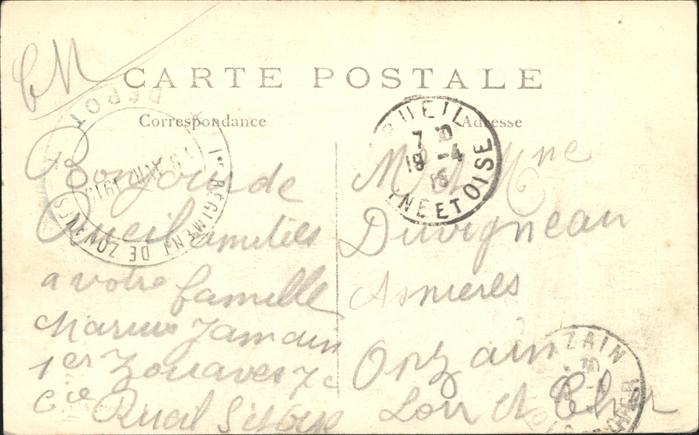 CM
CARTE POSTALE
Correspondance
Adresse
DÉPÔT
1er RÉGIMENT DE ZOUAVES
RUEIL
7 30
19 -4
15
SEINE ET OISE
Bonjour de
Rueil amitiés
a votre famille
Marius Jamain
1er Zouaves 7e
Cie Rueil S et Oise
M. et Mme
Duvigneau
Asnieres
Onzain
Loir et Cher
ONZAIN